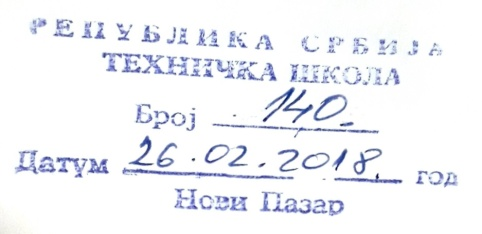 РЕПУБЛИКА СРБИЈА
ТЕХНИЧКА ШКОЛА
Број 140.
Датум 26.02.2018. год
Нови Пазар